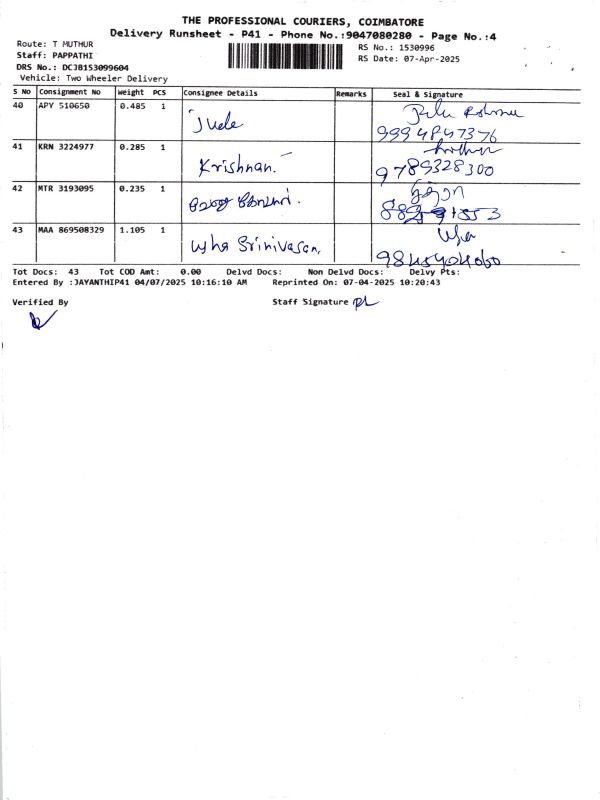 THE PROFESSIONAL COURIERS, COIMBATORE
Delivery Runsheet - P41 - Phone No.:9047080280 - Page No.:4
Route: T MUTHUR
RS No.: 1530996
Staff: PAPPATHI
RS Date: 07-Apr-2025
DRS No.: DCJB153099604
Vehicle: Two Wheeler Delivery
S No Consignment No Weight PCS Consignee Details Remarks Seal & Signature
40 APY 510650 0.485 1 Jude
9994847376
41 KRN 3224977 0.285 1 Krishnan.
9789328300
42 MTR 3193095 0.235 1
43 MAA 869508329 1.105 1 Usha Srinivasan. Usha
Tot Docs: 43 Tot COD Amt: 0.00 Delvd Docs: Non Delvd Docs: Delvy Pts:
Entered By :JAYANTHIP41 04/07/2025 10:16:10 AM Reprinted On: 07-04-2025 10:20:43
Verified By Staff Signature